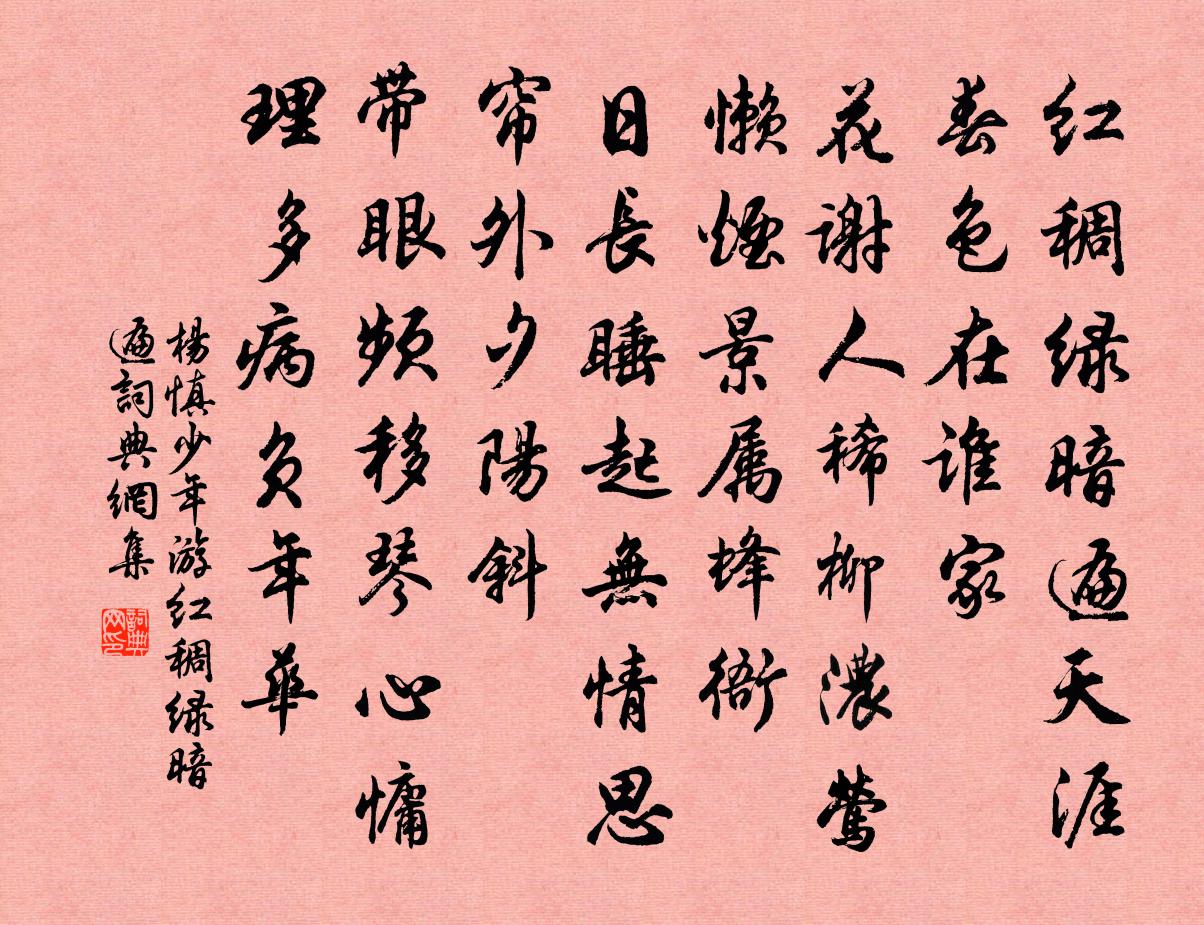 红稠绿暗遍天涯
春色在谁家
花谢人稀柳濃莺
懒煙景属蜂衙
日長睡起無情思
帘外夕陽斜
带眼频移琴心慵
理多病负年华
楊慎少年游红稠绿暗
遍詞典網集
詞典网印